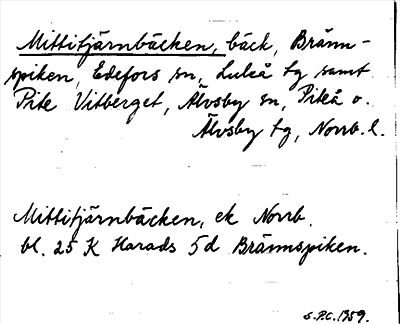 Mittitjärnbäcken, bäck, Bränn-
spiken, Edefors sn, Luleå tg samt
Pite Vitberget, Älvsby sn, Piteå o.
Älvsby tg, Norrb. l.
Mittitjärnbäcken, ek Norrb.
bl. 25 K Harads 5d Brännspiken.
S.P.C. 1959.